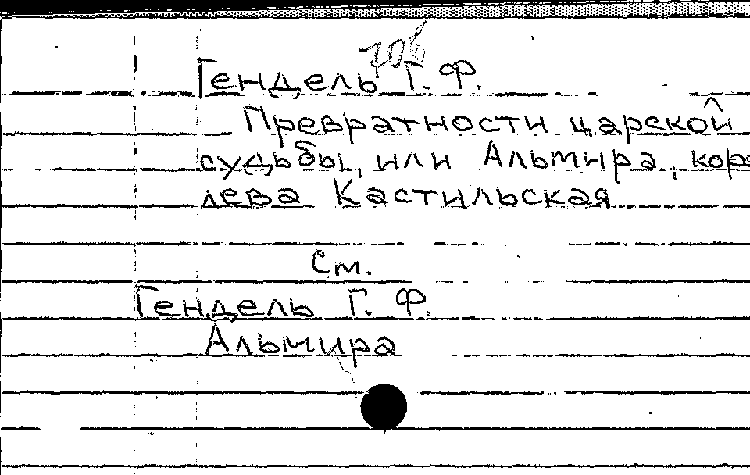 Гендель Г. Ф.
Превратности царской
судьбы, или Альмира, коро
лева Кастильская
См.
Гендель Г. Ф.
Альмира